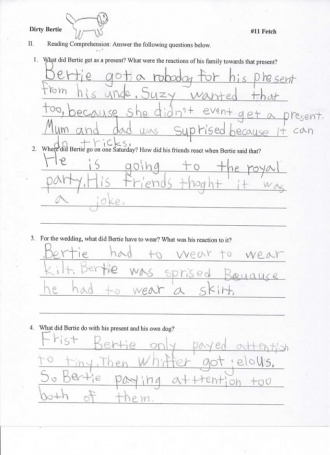 Dirty Bertie
#11 Fetch
II. Reading Comprehension: Answer the following questions below.
1. What did Bertie get as a present? What were the reactions of his family towards that present?
Bertie got a robodog for his present
from his uncle. Suzy wanted that
too, because she didn't event get a present.
Mum and dad was suprised because it can
do tricks.
2. Where did Bertie go on one Saturday? How did his friends react when Bertie said that?
He is going to the royal
party. His friends thoght it was
a joke.
3. For the wedding, what did Bertie have to wear? What was his reaction to it?
Bertie had to wear to wear
kilt. Bertie was sprised Beuause
he had to wear a skirt.
4. What did Bertie do with his present and his own dog?
Frist Bertie only payed attentish
to tiny. Then Whiffer got jelous.
So Bertie paying atttention too
both of them.